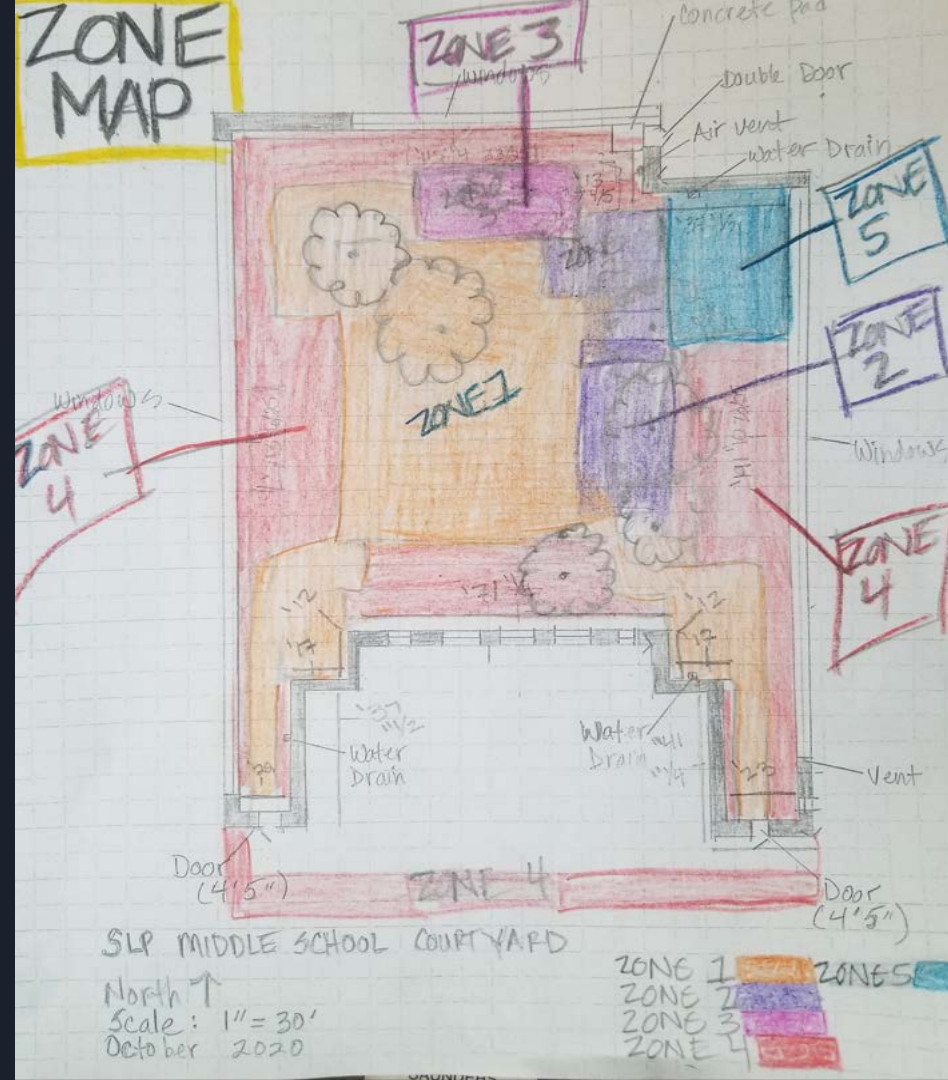 ZONE
MAP
ZONE 3
Windows
Concrete Pad
Double Door
Air vent
Water Drain
ZONE
5
ZONE
2
ZONE 1
Windows
ZONE
4
Windows
ZONE
4
'71
'12
'17
'12
'17
'37
"1/2
Water
Drain
Water
Drain
'41
"1/4
'23
Vent
Door
(4'5")
ZONE 4
Door
(4'5")
SLP MIDDLE SCHOOL COURTYARD
North ↑
Scale: 1" = 30'
October 2020
ZONE 1
ZONE 5
ZONE 2
ZONE 3
ZONE 4